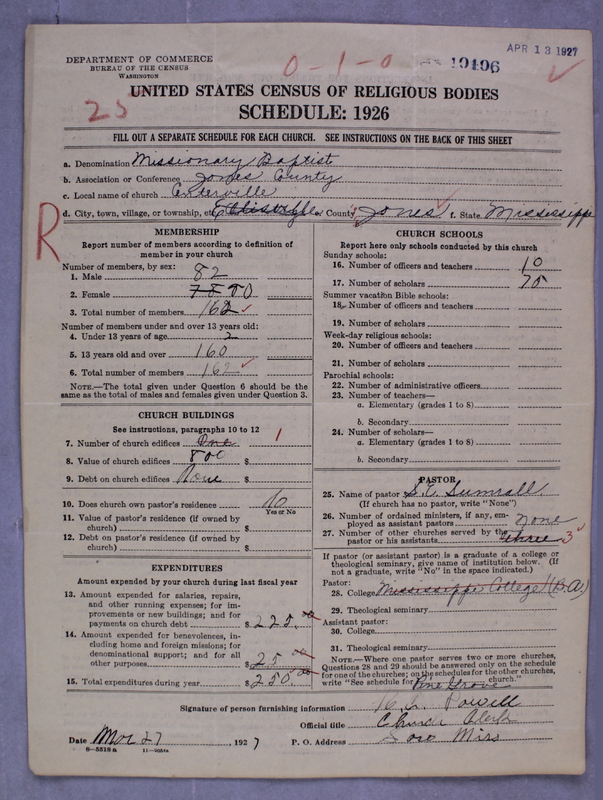 APR 13 1927
DEPARTMENT OF COMMERCE
BUREAU OF THE CENSUS
WASHINGTON
0-1-0
19406
25
UNITED STATES CENSUS OF RELIGIOUS BODIES
SCHEDULE: 1926
FILL OUT A SEPARATE SCHEDULE FOR EACH CHURCH. SEE INSTRUCTIONS ON THE BACK OF THIS SHEET
a. Denomination Missionary Baptist
b. Association or Conference Jones County
c. Local name of church Centerville
d. City, town, village, or township, etc. Ellisville or County Jones f. State Mississippi
R
MEMBERSHIP
Report number of members according to definition of
member in your church
Number of members, by sex:
1. Male 82
2. Female 78 80
3. Total number of members 162
Number of members under and over 13 years old:
4. Under 13 years of age 2
5. 13 years old and over 160
6. Total number of members 162
NOTE.—The total given under Question 6 should be the
same as the total of males and females given under Question 3.
CHURCH BUILDINGS
See instructions, paragraphs 10 to 12
7. Number of church edifices One 1
8. Value of church edifices 800 $
9. Debt on church edifices None $
10. Does church own pastor's residence? No
Yes or No
11. Value of pastor's residence (if owned by
church) $
12. Debt on pastor's residence (if owned by
church) $
EXPENDITURES
Amount expended by your church during last fiscal year
13. Amount expended for salaries, repairs,
and other running expenses; for im-
provements or new buildings; and for
payments on church debt $ 225.00
14. Amount expended for benevolences,
including home and foreign missions; for
denominational support; and for all
other purposes $ 25.00
15. Total expenditures during year $ 250.00
CHURCH SCHOOLS
Report here only schools conducted by this church
Sunday schools:
16. Number of officers and teachers 10
17. Number of scholars 75
Summer vacation Bible schools:
18. Number of officers and teachers
19. Number of scholars
Week-day religious schools:
20. Number of officers and teachers
21. Number of scholars
Parochial schools:
22. Number of administrative officers
23. Number of teachers—
a. Elementary (grades 1 to 8)
b. Secondary
24. Number of scholars—
a. Elementary (grades 1 to 8)
b. Secondary
PASTOR
25. Name of pastor Sumrall
(If church has no pastor, write "None")
26. Number of ordained ministers, if any, em-
ployed as assistant pastors none
27. Number of other churches served by the
pastor or his assistants three 3
If pastor (or assistant pastor) is a graduate of a college or
theological seminary, give name of institution below. (If
not a graduate, write "No" in the space indicated.)
Pastor:
28. College Mississippi College (B.A.)
29. Theological seminary
Assistant pastor:
30. College
31. Theological seminary
NOTE.—Where one pastor serves two or more churches,
Questions 28 and 29 should be answered only on the schedule
for one of the churches; on the schedules for the other churches,
write "See schedule for Pine Grove church."
Signature of person furnishing information Powell
Official title Church Clerk
Date Mar 27, 1927 P. O. Address Soso Miss
8-5518 a